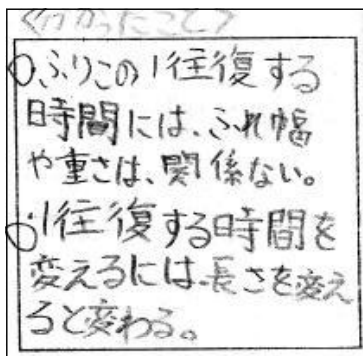 〈分かったこと〉
・ふりこの1往復する
時間には、ふれ幅
や重さは、関係ない。
・1往復する時間を
変えるには、長さを変え
ると変わる。